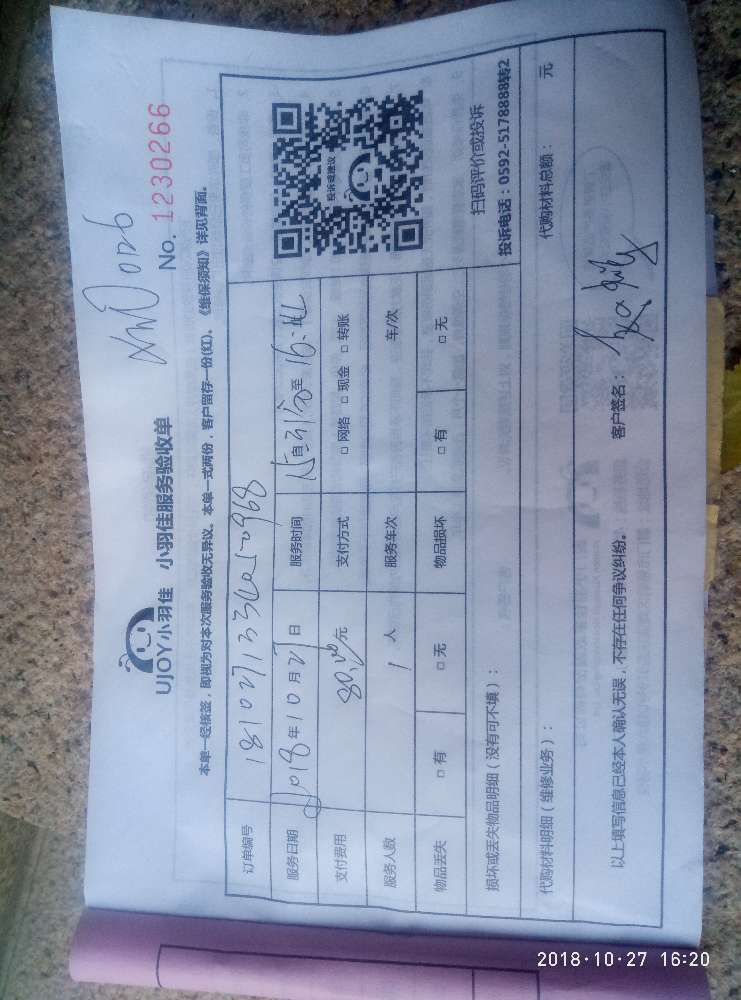 UJOY小羽佳 小羽佳服务验收单
No. 1230266
本单一经核签，即视为对本次服务验收无异议。本单一式两份，客户留存一份(红)。《维保须知》详见背面。
订单编号
服务日期 2018年10月27日 服务时间 至
支付费用 80.00元 支付方式 □网络 □现金 □转账
服务人数 1人 服务车次 车/次
物品丢失 □有 □无 物品损坏 □有 □无
投诉或建议
扫码评价或投诉
投诉电话：0592-5178888转2
损坏或丢失物品明细（没有可不填）：
代购材料明细（维修业务）： 代购材料总额： 元
以上填写信息已经本人确认无误，不存在任何争议纠纷。 客户签名：
2018·10·27 16:20